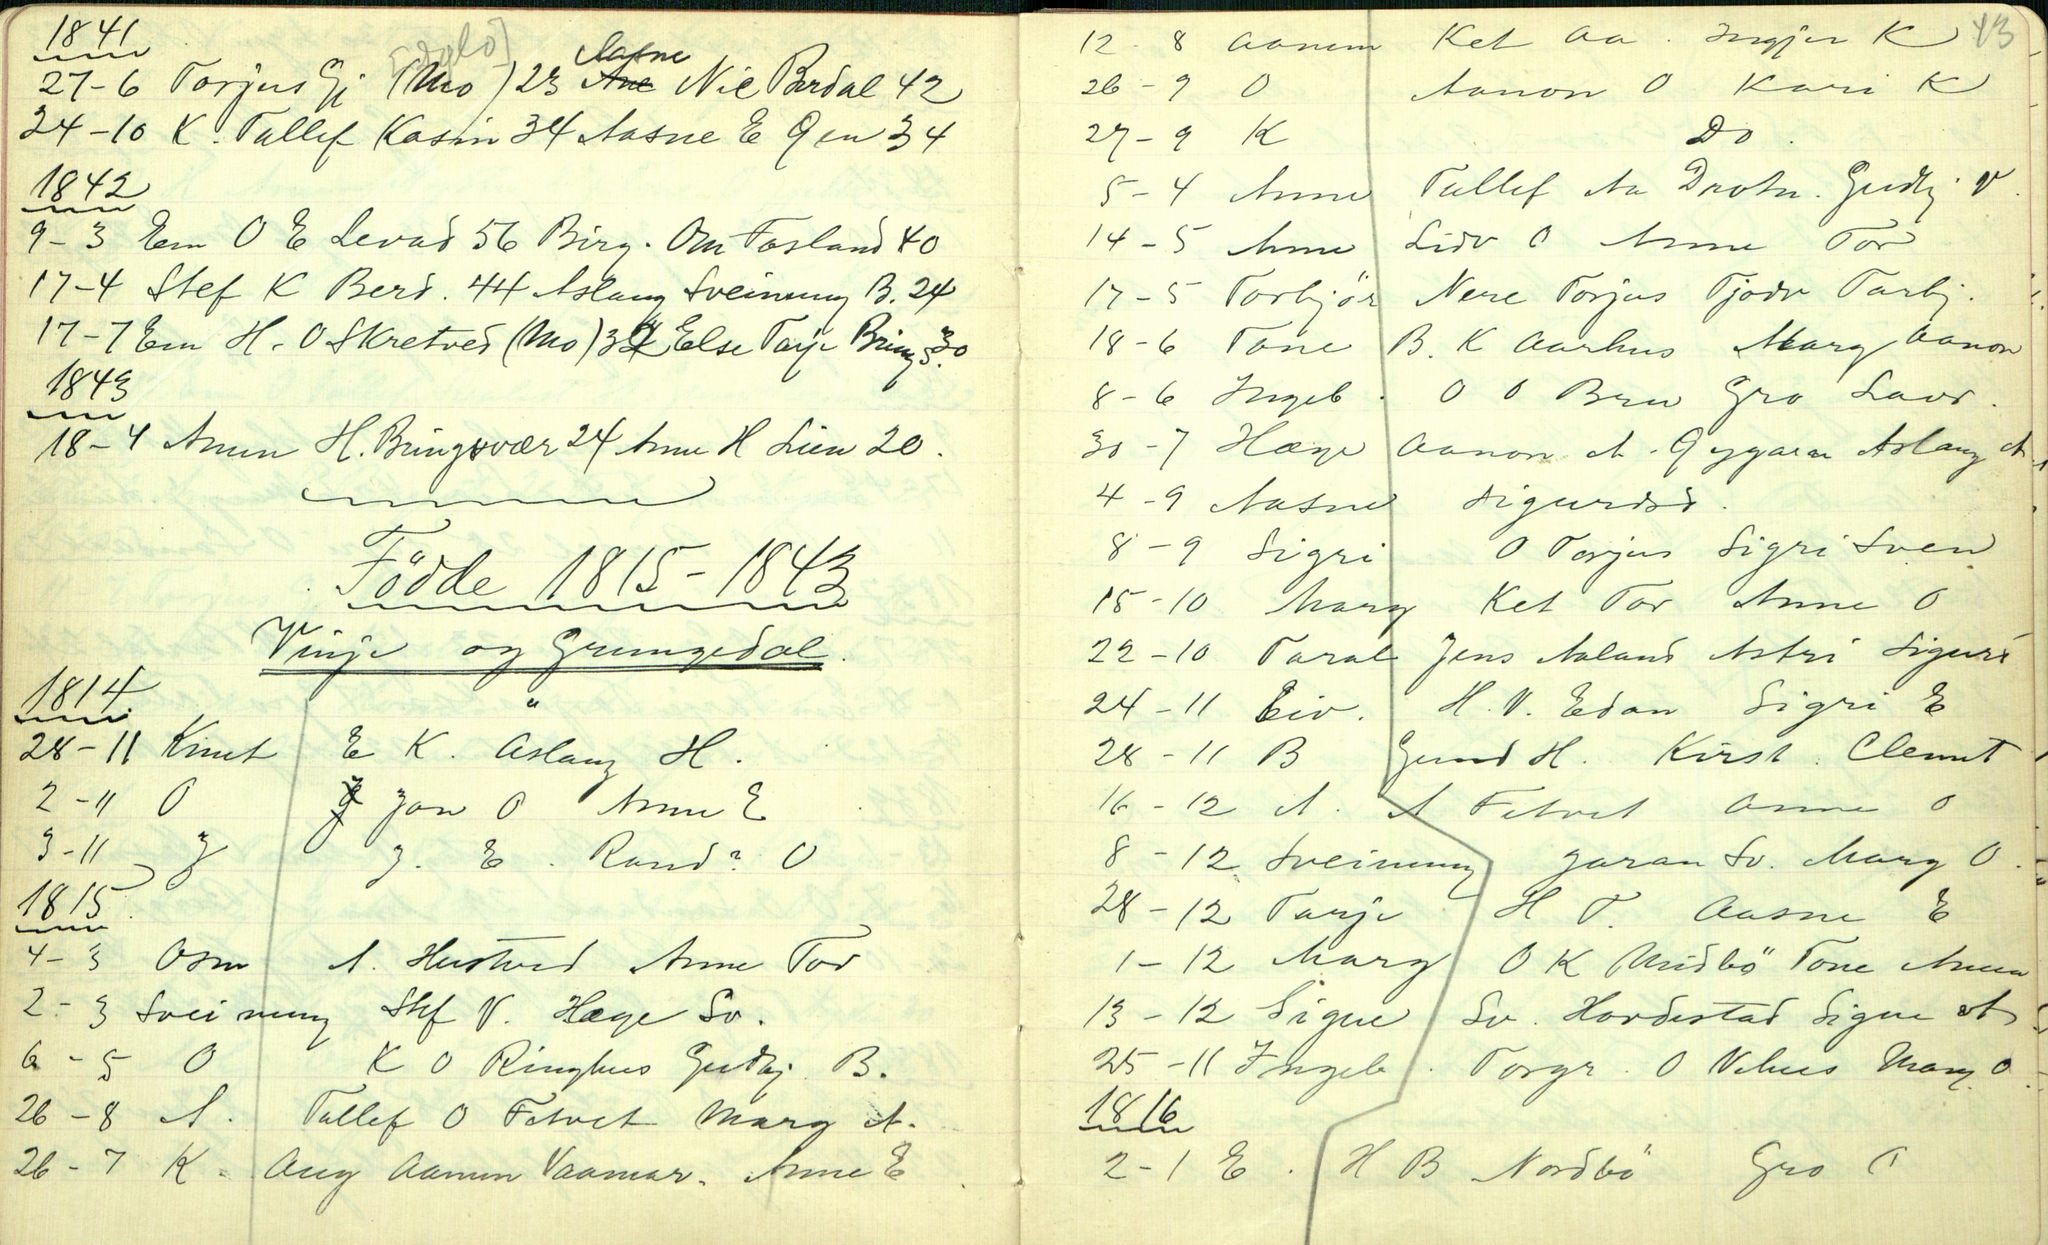 1841
27-6 Torjus Gj (Mo) 23 Aasne Nil Berdal 42
24-10 K. Tallef Kosin 34 Aasne E Gen 34
1842
9-3 Em O E Levad 56 Birg. Om Fosland 40
17-4 Stef K Berd. 44 Aslaug Sveinung B. 24
17-7 Em H. O Skretved (Mo) 32 Else Tarje Brings. 30
1843
18-4 Amun H. Bringsvær 24 Anne H Lien 20.
Födde 1815-1843
Vinje og Grungedal.
1814
28-11 Knut E K. Aslaug H.
2-11 O Jon O Anne E
3-11 J J. E. Rand? O
1815
4-3 Osm A. Hustved Anne Tor
2-3 Sveinung Stef V. Hæge Sv.
6-5 O K O Ringhus Gudbj. B.
26-8 A. Tallef O Fetvet Marg A.
26-7 K. Aug Aamun Vaamar. Anne E
43
12-8 Aanun Ket Aa. Ingjer K
26-9 O Aanon O Kari K
27-9 K Do.
5-4 Anne Tallef Aa Drotn. Gudbj V.
14-5 Anne Sidv O Anne Tor
17-5 Torbjör Nere Torjus Tjodv Tarbj.
18-6 Tone B. K Aarhus Marg Aanon
8-6 Ingeb. O O Bru Gro Lavr.
30-7 Hæge Aanon A. Gygarn Aslaug A
4-9 Aasne Sigurdsd.
8-9 Sigri O Torjus Sigri Sven
15-10 Marg Ket Tor Anne O
22-10 Taral Jens Aaland Astri Sigurd
24-11 Eiv. H. V. Edan Sigri E
28-11 B Gund H. Kirst. Clemet
16-12 A. A Fetvet Anne O
8-12 Sveinung Jaran Sv. Marg O.
28-12 Tarje H T. Aasne E
1-12 Marg O K Midbö Tone Amun
13-12 Signe Sv. Hordestad Signe A
25-11 Ingeb. Torgr. O Vehus Marg O.
1816
2-1 E. H B Nordbö Gro T